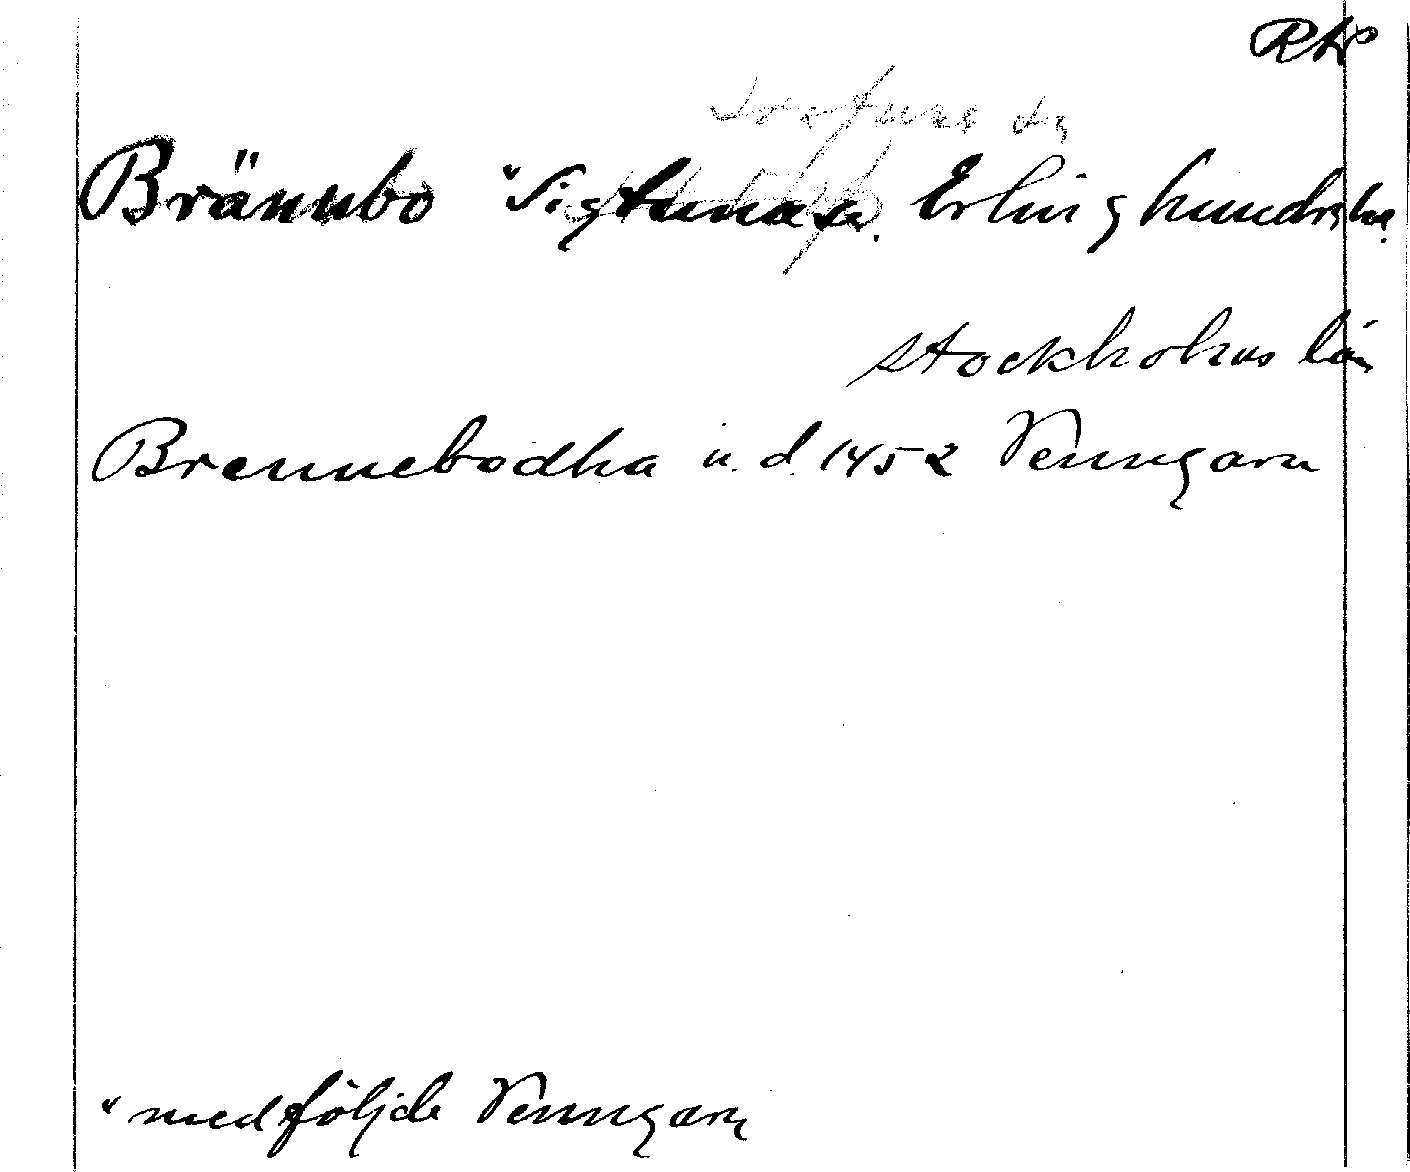 RA
Brännbo "Sigtuna sn. Erlinghundra hd.
Stockholms län
Brennebodha u. d. 1452 Venngarn
"medföljde Venngarn